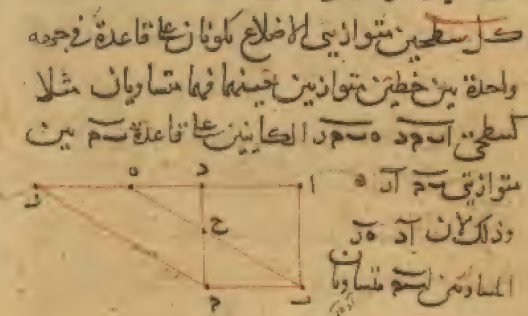 كل سطحين متوازيي الاضلاع يكونان على قاعدة في جهة
واحدة بين خطين متوازيين بعينهما فهما متساويان مثلا
كسطحي ا ب ج د ه ب ج ر الكاينين على قاعدة ب ج بين
متوازيي ب ج ا ر
وذلك لان ا د ه ر
المساويين ل ب ج متساويان
ر ه د ا
ح
ج ب